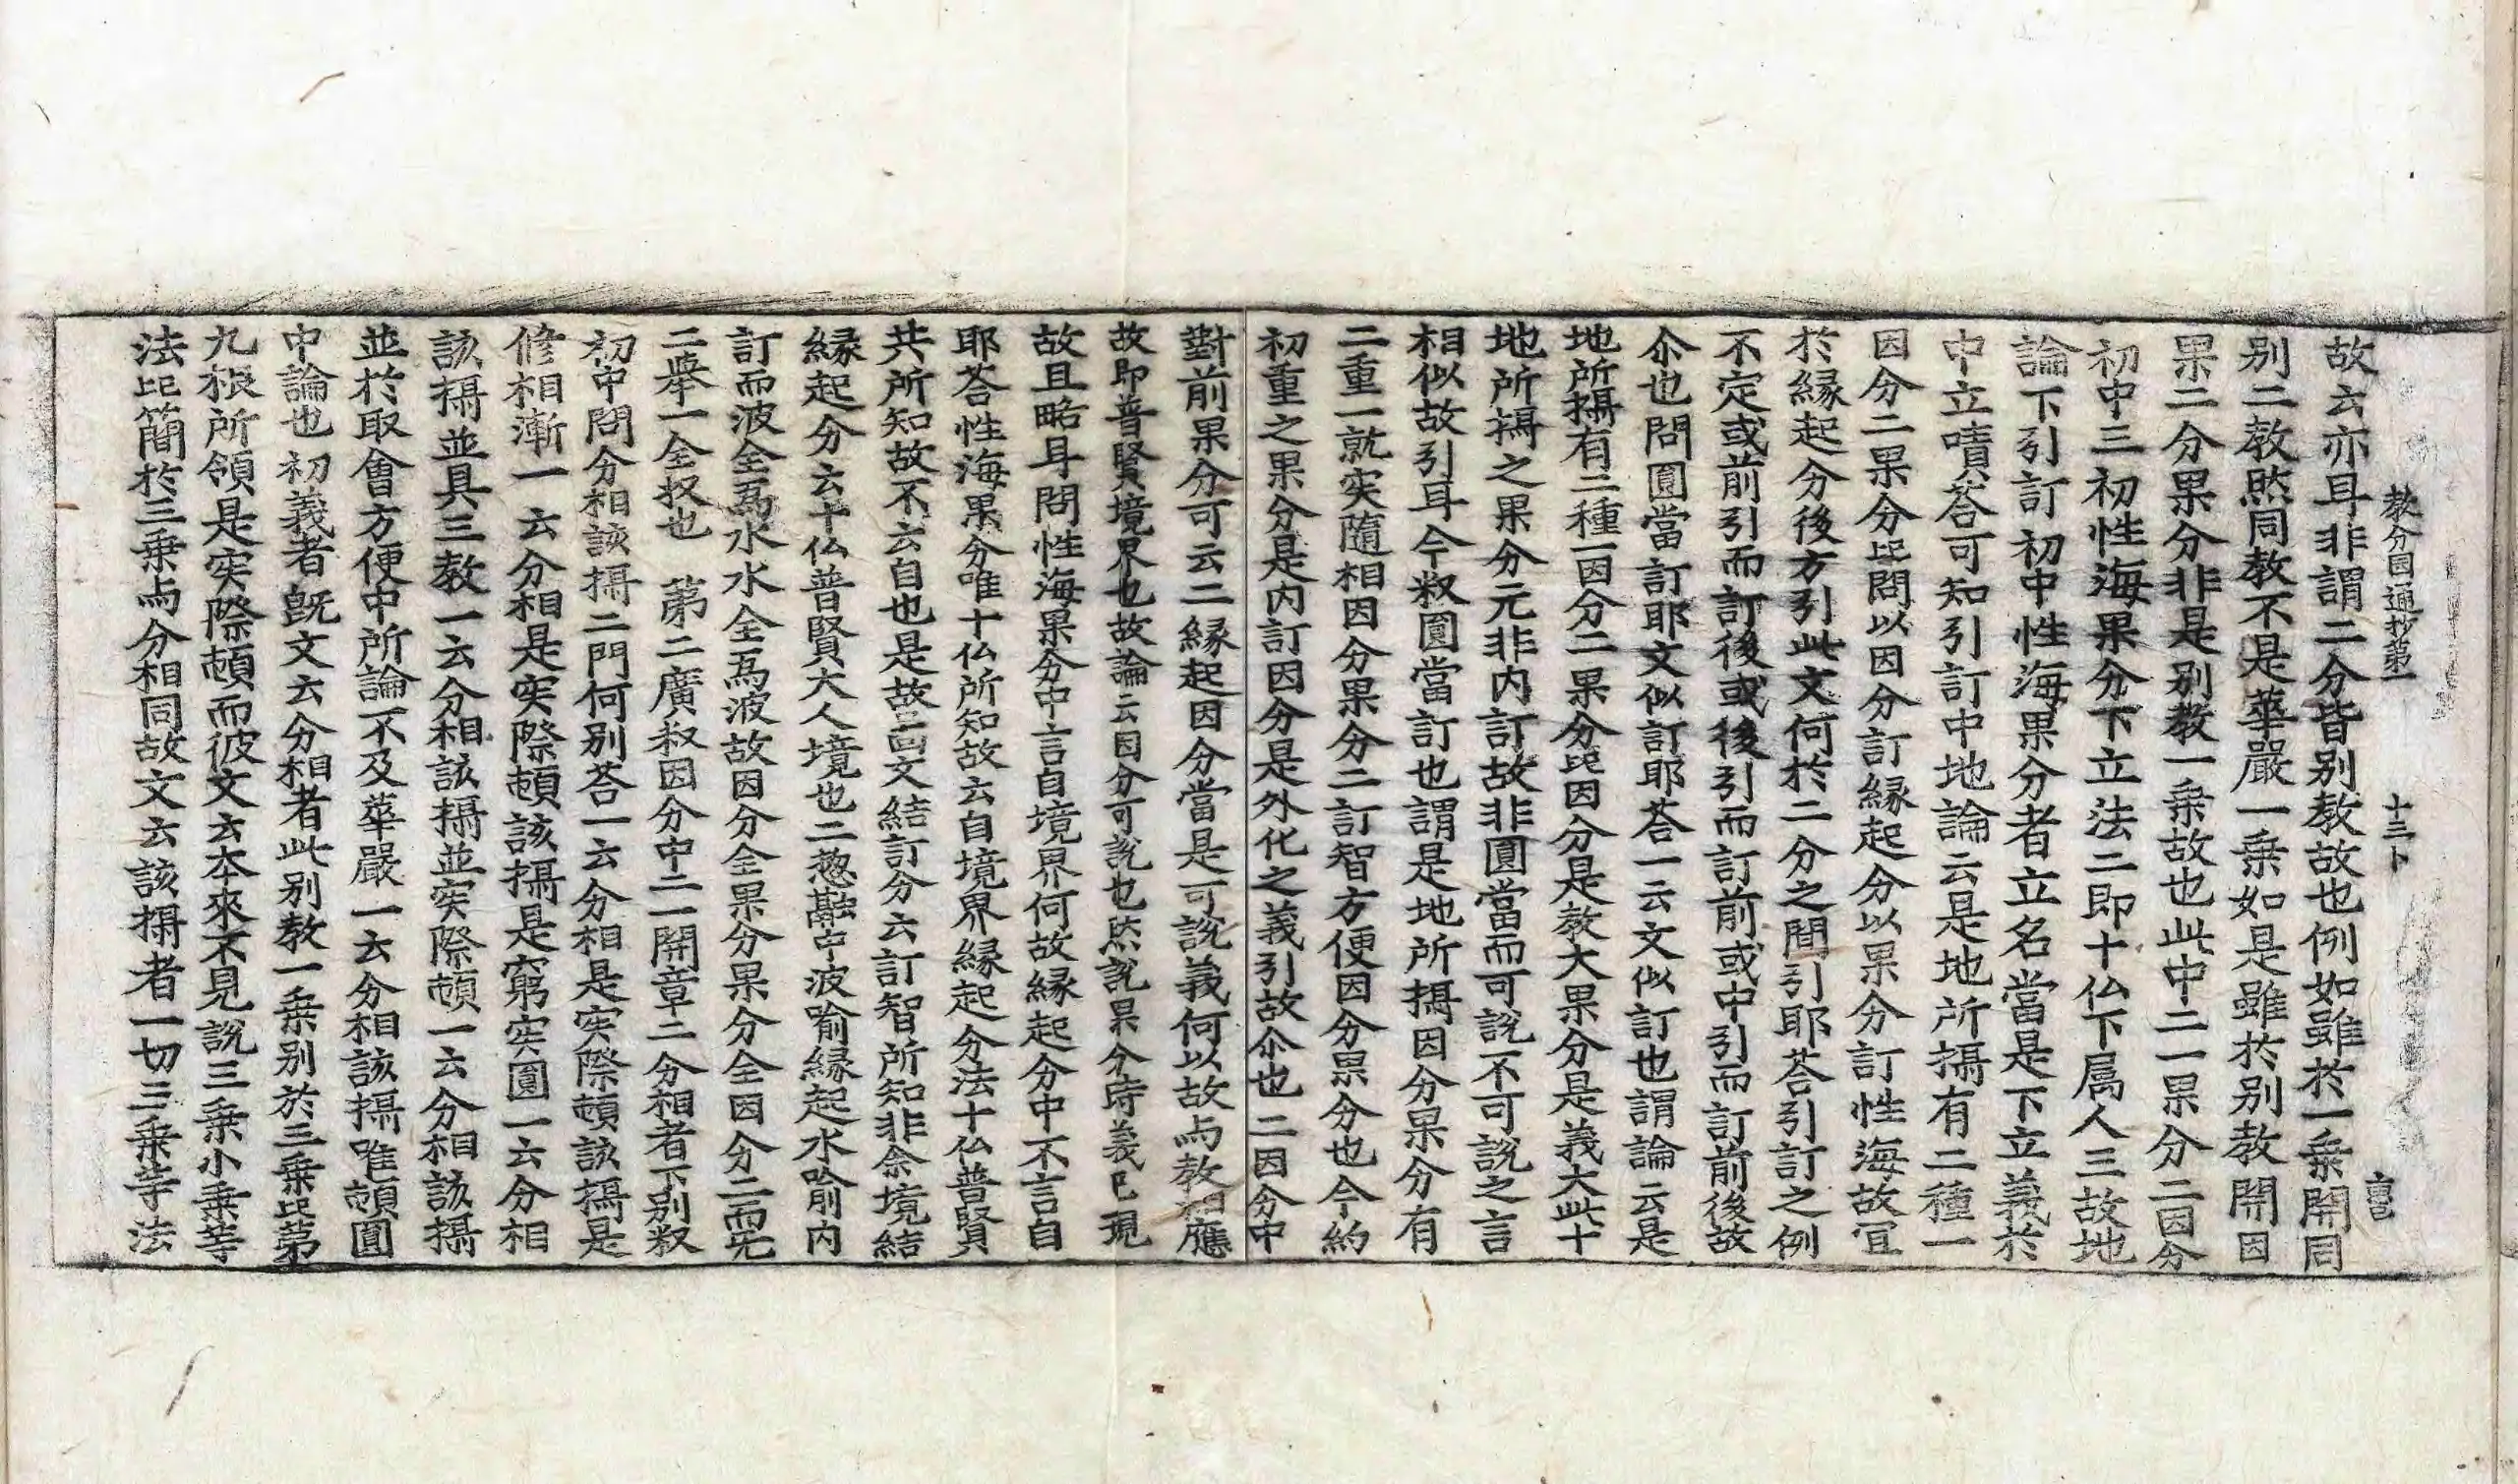 教分圓通抄第一 十三卜
故云亦耳非謂二分皆别教故也例如雖於一乗開同
别二教㷊同教不是華嚴一乗如是雖於别教開因
果二分果分非是别教一乗故也此中二一果分二因分
初中三初性海果分下立法二即十仏下属人三故地
論下引訂初中性海果分者立名當是下立義於
中立嘖荅可知引訂中地論云是地所攝有二種一
因分二果分此問以因分訂縁起分以果分訂性海故冝
於縁起分後方引此文何於二分之間引耶荅引訂之例
不定或前引而訂後或後引而訂前或中引而訂前後故
尒也問圓當訂耶文似訂耶荅一云文似訂也謂論云是
地所攝有二種一因分二果分此因分是教大果分是義大此十
地所攝之果分元非内訂故非圓當而可說不可說之言
相似故引耳今叙圓當訂也謂是地所攝因分果分有
二重一就実隨相因分果分二訂智方便因分果分也今約
初重之果分是内訂因分是外化之義引故尒也二因分中
對前果分可云二縁起因分當是可說義何以故与教相應
故即普賢境界也故論云因分可說也然說果分時義已現
故且略耳問性海果分中言自境界何故縁起分中不言自
耶荅性海果分唯十仏所知故云自境界縁起分法十仏普賢
共所知故不云自也是故三啚文結訂分云訂智所知非余境結
縁起分云十仏普賢大人境也二惣融中波喻縁起水喻内
訂而波全爲水水全爲波故因分全果分果分全因分二而无
二舉一全収也 苐二廣叙因分中二一開章二分相者下别叙
初中問分相該攝二門何别荅一云分相是実際頓該攝是
修相漸一云分相是実際頓該攝是窮実圓一云分相
該攝並具三教一云分相該攝並実際頓一云分相該攝
並於取會方便中所論不及華嚴一云分相該攝唯頓圓
中論也初義者旣文云分相者此别教一乗别於三乗此苐
九根所領是実際頓而彼文云本來不見說三乗小乗等
法此簡於三乗与分相同故文云該攝者一切三乗等法